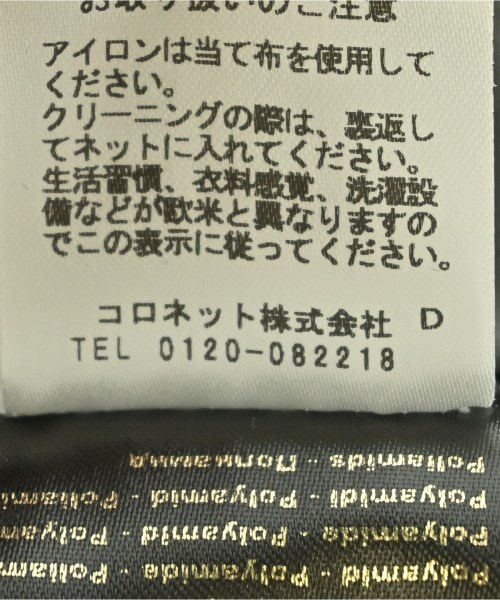 お取り扱いのご注意
アイロンは当て布を使用して
ください。
クリーニングの際は、裏返し
てネットに入れてください。
生活習慣、衣料感覚、洗濯設
備などが欧米と異なりますの
でこの表示に従ってください。
コロネット株式会社 D
TEL 0120-082218
Poliamids - Полиамид
Polyamidi - Polyamid - Poliami
Polyamide - Polyamid - Polyam
Poliamid - Polyamide - Poliami